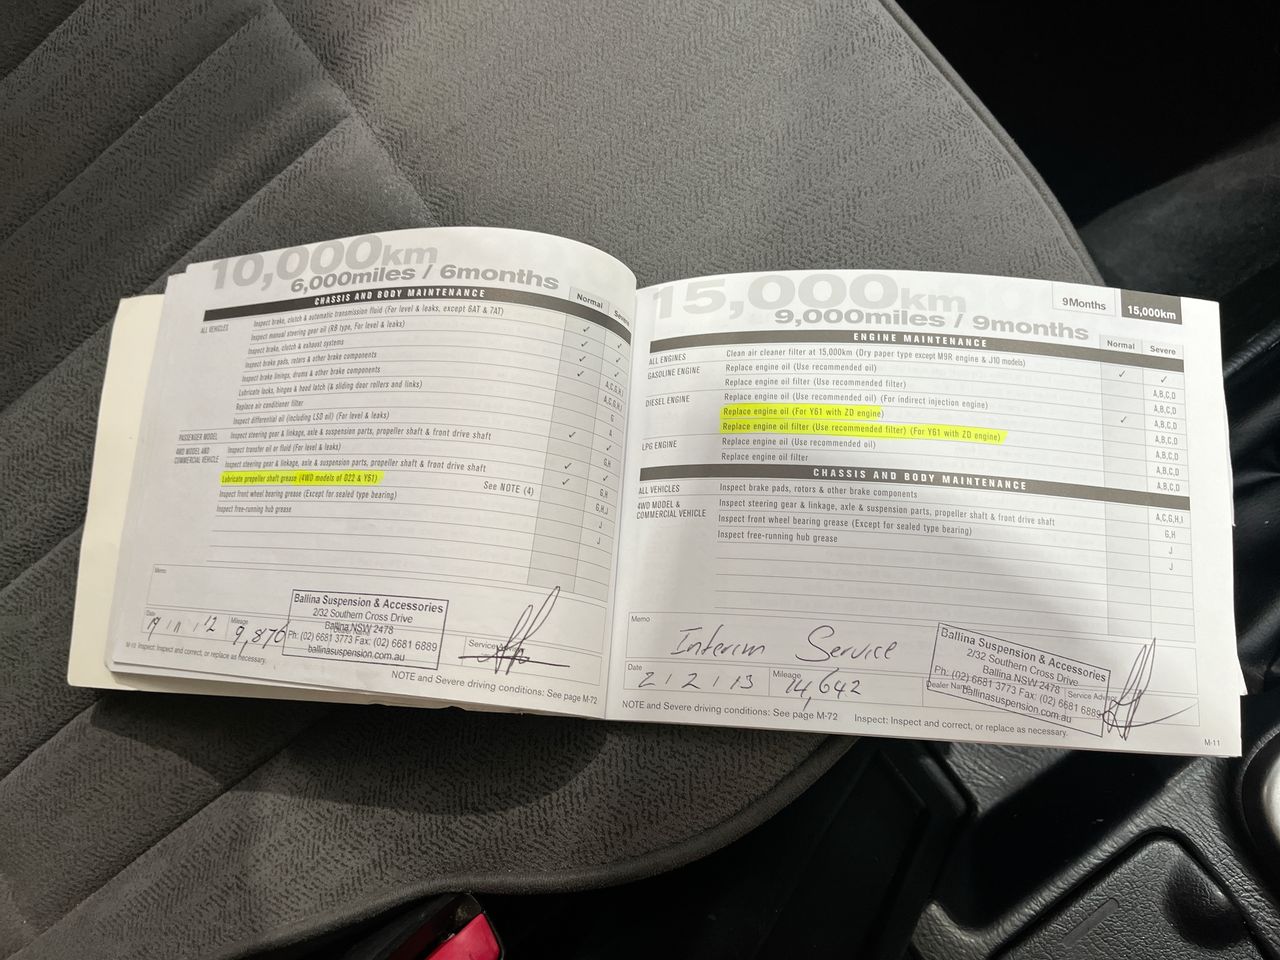 10,000km
6,000miles / 6months
CHASSIS AND BODY MAINTENANCE
Normal
Severe
ALL VEHICLES
Inspect brake, clutch & automatic transmission fluid (For level & leaks, except 6AT & 7AT)
Inspect manual steering gear oil (RB type, For level & leaks)
Inspect brake, clutch & exhaust systems
Inspect brake pads, rotors & other brake components
Inspect brake linings, drums & other brake components
A,C,G,H,I
Lubricate locks, hinges & hood latch (& sliding door rollers and links)
A,C,G,H,I
Replace air conditioner filter
G
Inspect differential oil (including LSD oil) (For level & leaks)
A
PASSENGER MODEL
Inspect steering gear & linkage, axle & suspension parts, propeller shaft & front drive shaft
4WD MODEL AND
COMMERCIAL VEHICLE
Inspect transfer oil or fluid (For level & leaks)
G,H
Inspect steering gear & linkage, axle & suspension parts, propeller shaft & front drive shaft
Lubricate propeller shaft grease (4WD models of D22 & Y61)
See NOTE (4)
G,H
Inspect front wheel bearing grease (Except for sealed type bearing)
G,H,J
Inspect free-running hub grease
J
J
Memo
Date
Mileage
9,876
Ballina Suspension & Accessories
2/32 Southern Cross Drive
Ballina NSW 2478
Ph: (02) 6681 3773 Fax: (02) 6681 6889
ballinasuspension.com.au
Inspect: Inspect and correct, or replace as necessary.
NOTE and Severe driving conditions: See page M-72
15,000km
9,000miles / 9months
9Months
15,000km
ENGINE MAINTENANCE
Normal
Severe
ALL ENGINES
Clean air cleaner filter at 15,000km (Dry paper type except M9R engine & J10 models)
GASOLINE ENGINE
Replace engine oil (Use recommended oil)
A,B,C,D
Replace engine oil filter (Use recommended filter)
A,B,C,D
DIESEL ENGINE
Replace engine oil (Use recommended oil) (For indirect injection engine)
A,B,C,D
Replace engine oil (For Y61 with ZD engine)
A,B,C,D
Replace engine oil filter (Use recommended filter) (For Y61 with ZD engine)
A,B,C,D
LPG ENGINE
Replace engine oil (Use recommended oil)
A,B,C,D
Replace engine oil filter
A,B,C,D
CHASSIS AND BODY MAINTENANCE
ALL VEHICLES
Inspect brake pads, rotors & other brake components
A,C,G,H,I
4WD MODEL &
COMMERCIAL VEHICLE
Inspect steering gear & linkage, axle & suspension parts, propeller shaft & front drive shaft
G,H
Inspect front wheel bearing grease (Except for sealed type bearing)
J
Inspect free-running hub grease
J
Memo
Interim Service
Date
2/2/13
Mileage
14,642
Dealer Name
Service Advisor
Ballina Suspension & Accessories
2/32 Southern Cross Drive
Ballina NSW 2478
Ph: (02) 6681 3773 Fax: (02) 6681 6889
Ballinasuspension.com.au
NOTE and Severe driving conditions: See page M-72
Inspect: Inspect and correct, or replace as necessary.
M-11